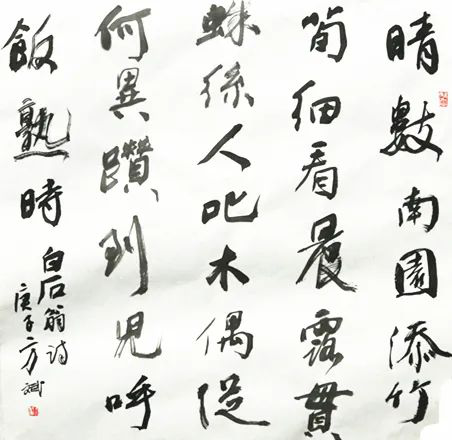 晴數南園添竹
筍細看晨露貫
蛛絲人叱木偶促
何異躓到兒呼
飯熟時
白石翁詩
庚子方斌